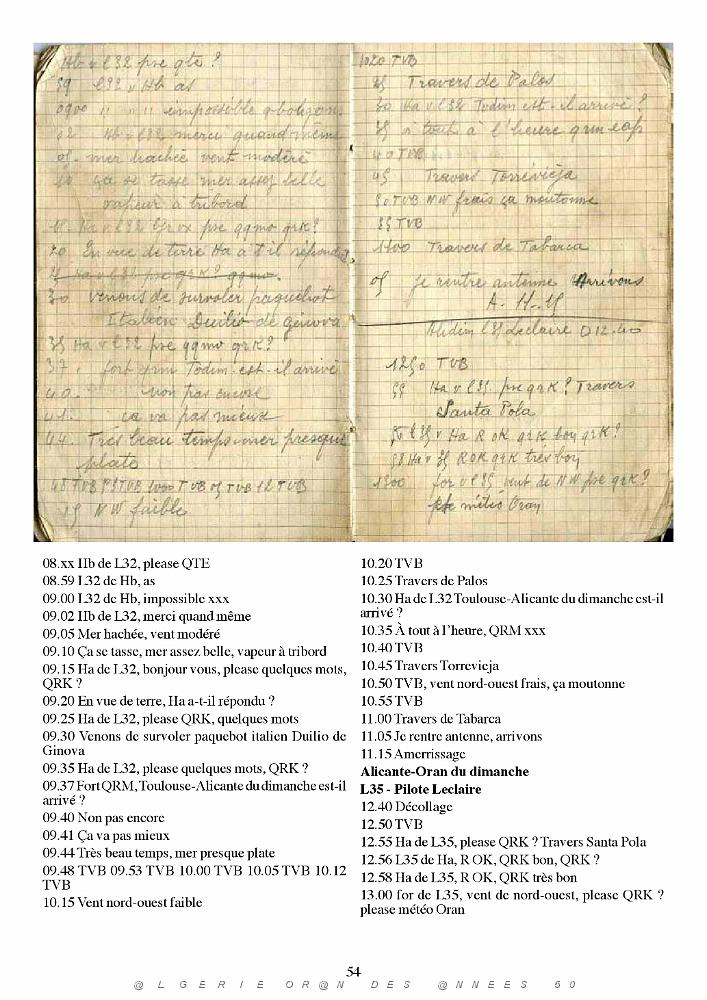 Hb v l32 pse qte ?
59 l32 v Hb as
0900 " " " impossible
02 Hb v l32 merci quand même
05 mer hachée vent modéré
10 ça se tasse mer assez belle
vapeur à tribord
15 Ha v l32 pse qqmo qrk ?
20 En vue de terre Ha a t'il répondu
25 Ha v l32 pse qrk ? qqmo.
30 venons de survoler paquebot
Italien Duilio de Genova
35 Ha v l32 pse qqmo qrk ?
37 " fort qrm Todim est-il arrivé
40. non pas encore
41. ça va pas mieux
44. Très beau temps mer presque
plate
48 TVB 53 TVB 1000 TVB 05 TVB 12 TVB
15 NW faible
1020 TVB
25 Travers de Palos
30 Ha v l32 Todim est-il arrivé ?
35 a tout à l'heure qrm
40 TVB
45 Travers Torrévieja
50 TVB NW frais ça moutonne
55 TVB
1100 Travers de Tabarca
05 Je rentre antenne Arrivons
A. 11-15
Alidim l35 Leclaire D 12.40
1250 TVB
55 Ha v l35 pse qrk ? Travers
Santa Pola
56 l35 v Ha R OK qrk bon qrk ?
58 Ha v 35 R OK qrk très bon
1300 for v l35 vent de NW pse qrk ?
pse météo Oran
08.xx Hb de L32, please QTE
08.59 L32 de Hb, as
09.00 L32 de Hb, impossible xxx
09.02 Hb de L32, merci quand même
09.05 Mer hachée, vent modéré
09.10 Ça se tasse, mer assez belle, vapeur à tribord
09.15 Ha de L32, bonjour vous, please quelques mots,
QRK ?
09.20 En vue de terre, Ha a-t-il répondu ?
09.25 Ha de L32, please QRK, quelques mots
09.30 Venons de survoler paquebot italien Duilio de
Ginova
09.35 Ha de L32, please quelques mots, QRK ?
09.37 Fort QRM, Toulouse-Alicante du dimanche est-il
arrivé ?
09.40 Non pas encore
09.41 Ça va pas mieux
09.44 Très beau temps, mer presque plate
09.48 TVB 09.53 TVB 10.00 TVB 10.05 TVB 10.12
TVB
10.15 Vent nord-ouest faible
10.20 TVB
10.25 Travers de Palos
10.30 Ha de L32 Toulouse-Alicante du dimanche est-il
arrivé ?
10.35 À tout à l'heure, QRM xxx
10.40 TVB
10.45 Travers Torrevieja
10.50 TVB, vent nord-ouest frais, ça moutonne
10.55 TVB
11.00 Travers de Tabarca
11.05 Je rentre antenne, arrivons
11.15 Amerrissage
Alicante-Oran du dimanche
L35 - Pilote Leclaire
12.40 Décollage
12.50 TVB
12.55 Ha de L35, please QRK ? Travers Santa Pola
12.56 L35 de Ha, R OK, QRK bon, QRK ?
12.58 Ha de L35, R OK, QRK très bon
13.00 for de L35, vent de nord-ouest, please QRK ?
please météo Oran
54
@ L G E R I E O R @ N D E S @ N N E E S 5 0